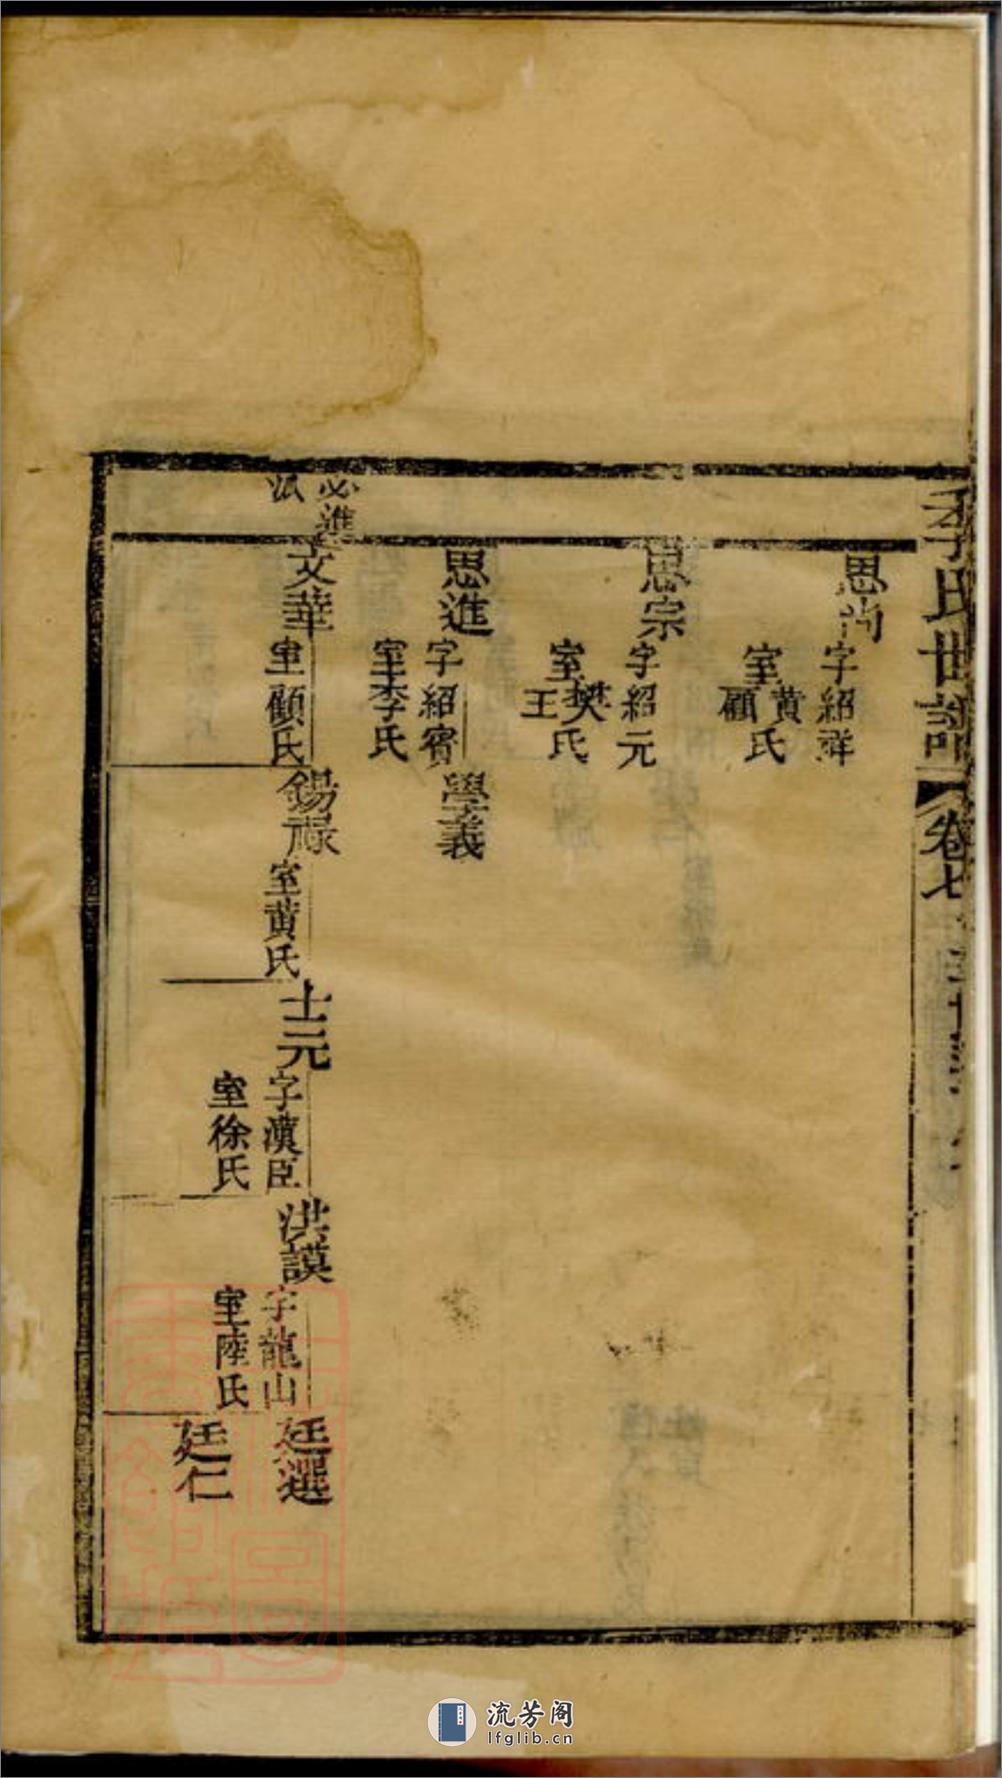 李氏世譜 卷七
思尚
字紹祥
室黄顧氏
思宗
字紹元
室樊王氏
思進
字紹賓
室李氏
學義
必進
文華
室顧氏
錫祿
室黄氏
士元
字漢臣
室徐氏
洪謨
字龍山
室陸氏
廷選
廷仁
流芳阁
lfglib.cn